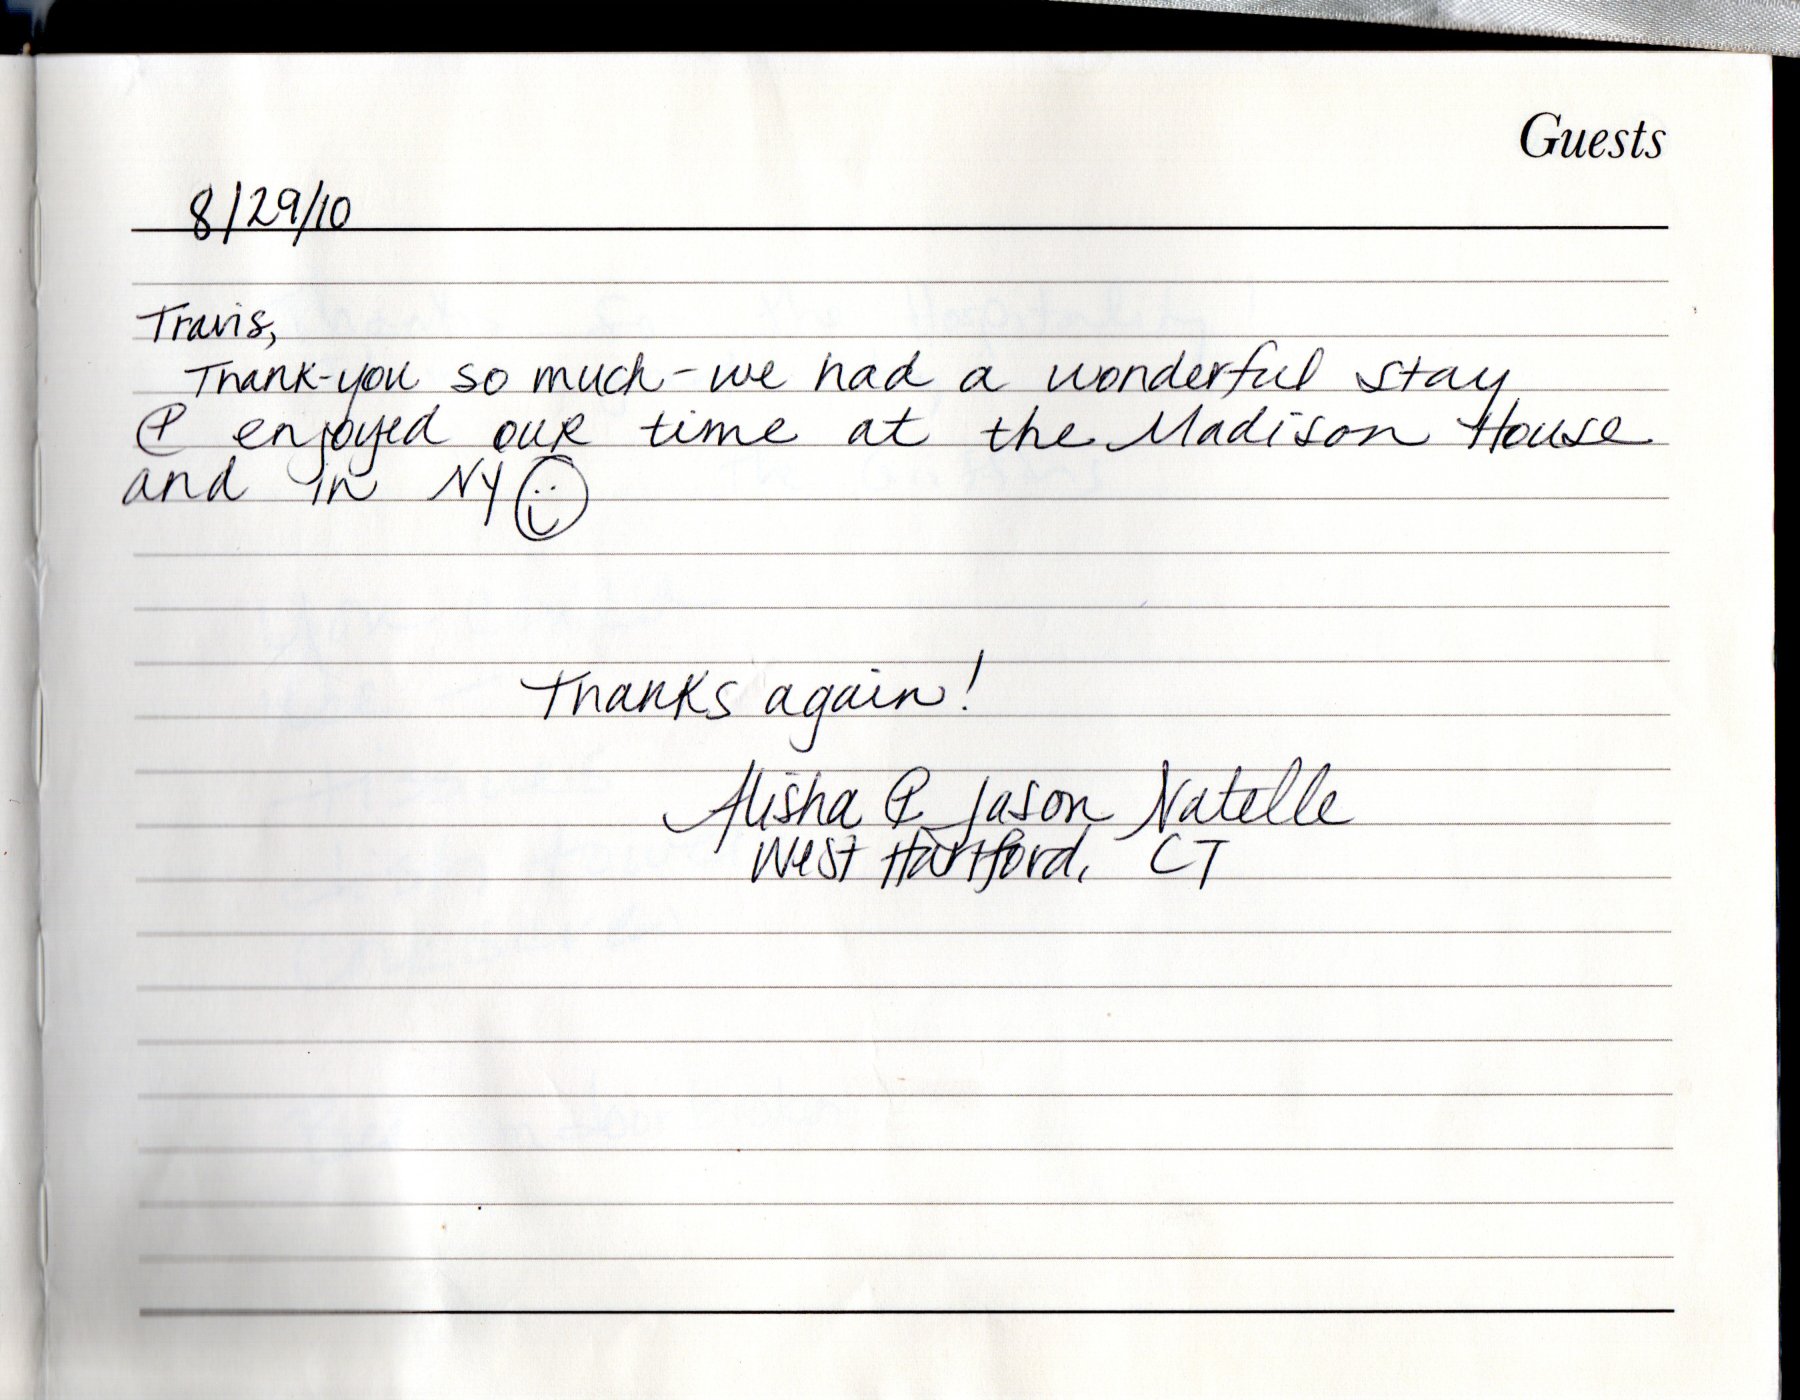 Guests
8/29/10
Travis,
Thank-you so much - we had a wonderful stay
& enjoyed our time at the Madison House
and in NY ☺
Thanks again!
Alisha & Jason Natelle
West Hartford, CT